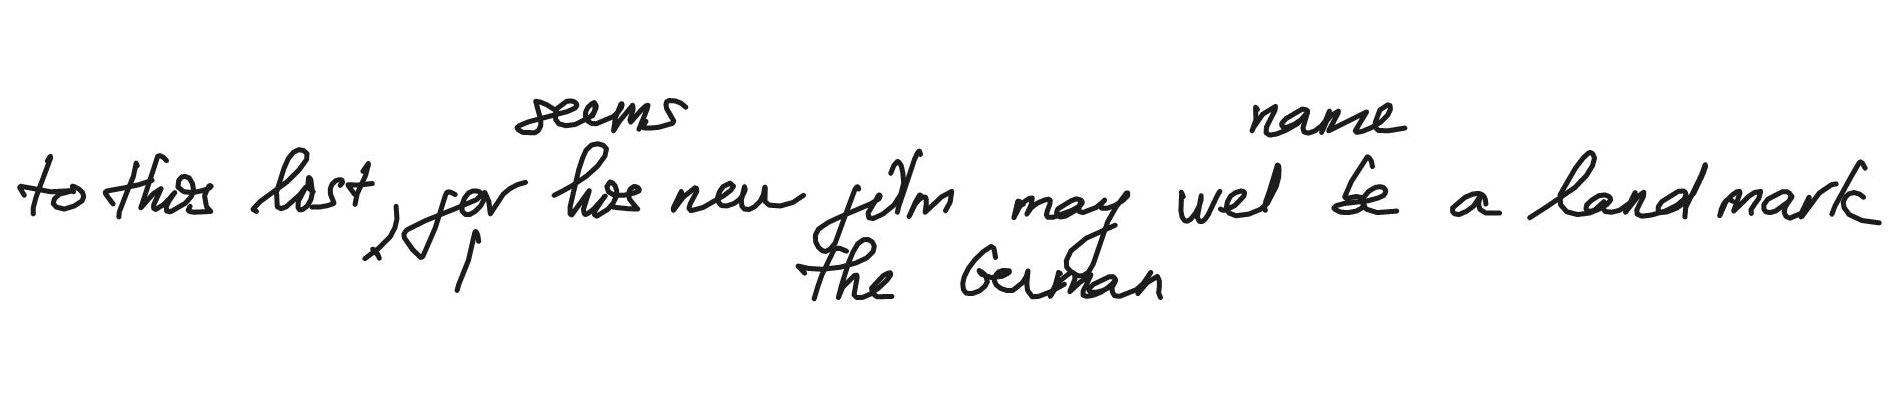 seems name
to this list, for his new film may wel be a land mark
the German